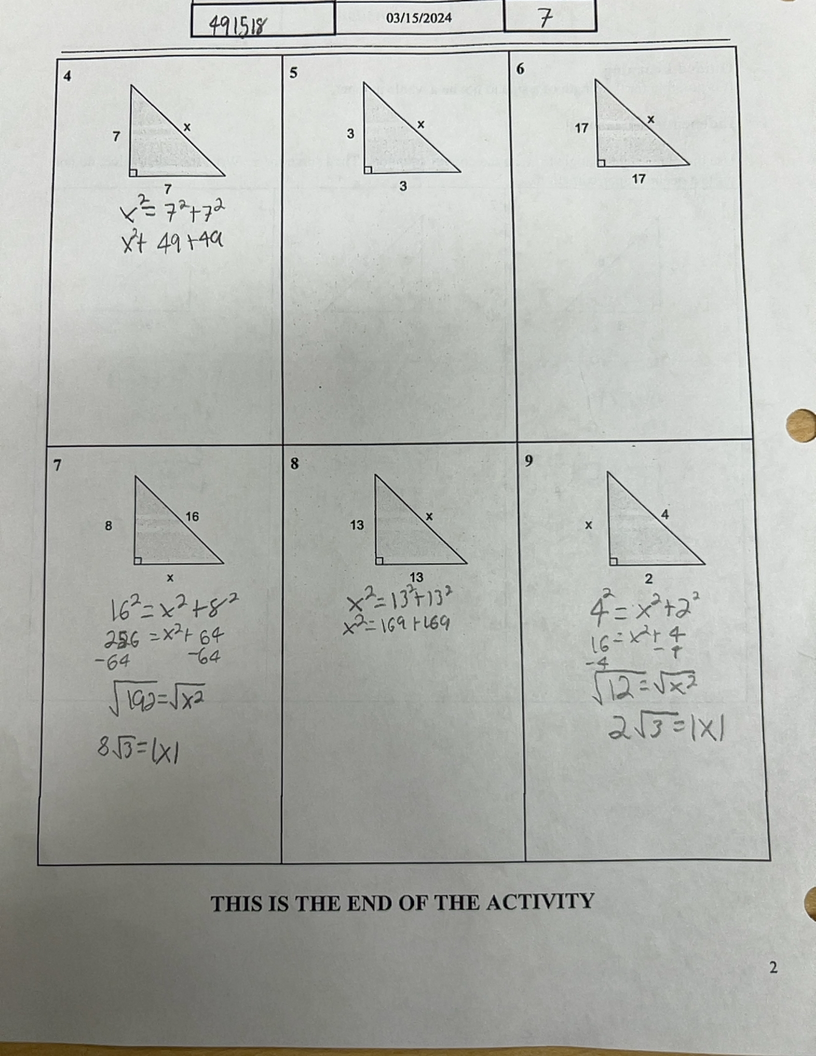 491518
03/15/2024
7
4
7
x
7
x² = 7² + 7²
x² + 49 + 49
5
3
x
3
6
17
x
17
7
8
16
x
16² = x² + 8²
256 = x² + 64
-64 -64
√192 = √x²
8√3 = |x|
8
13
x
13
x² = 13² + 13²
x² = 169 + 169
9
x
4
2
4² = x² + 2²
16 = x² + 4
-4 -4
√12 = √x²
2√3 = |x|
THIS IS THE END OF THE ACTIVITY
2